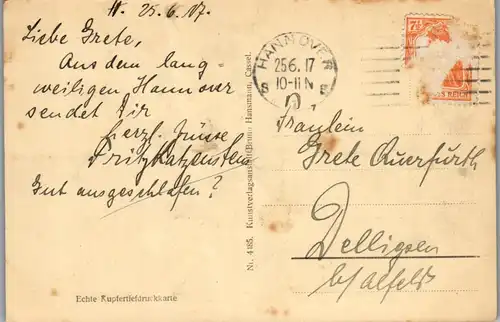 H. 25.6.17.
Liebe Grete,
Aus dem lang-
weiligen Hannover
sendet Dir
herzl. Grüsse
Fritz Katzenstein
Gut ausgeschlafen?
Echte Kupfertiefdruckkarte
Nr. 4185. Kunstverlagsanstalt Bruno Hansmann, Cassel.
HANNOVER
25.6.17
10-11 N
S 5
7½
REICH
Fräulein
Grete Querfurth
Delligsen
b/ Alfeld